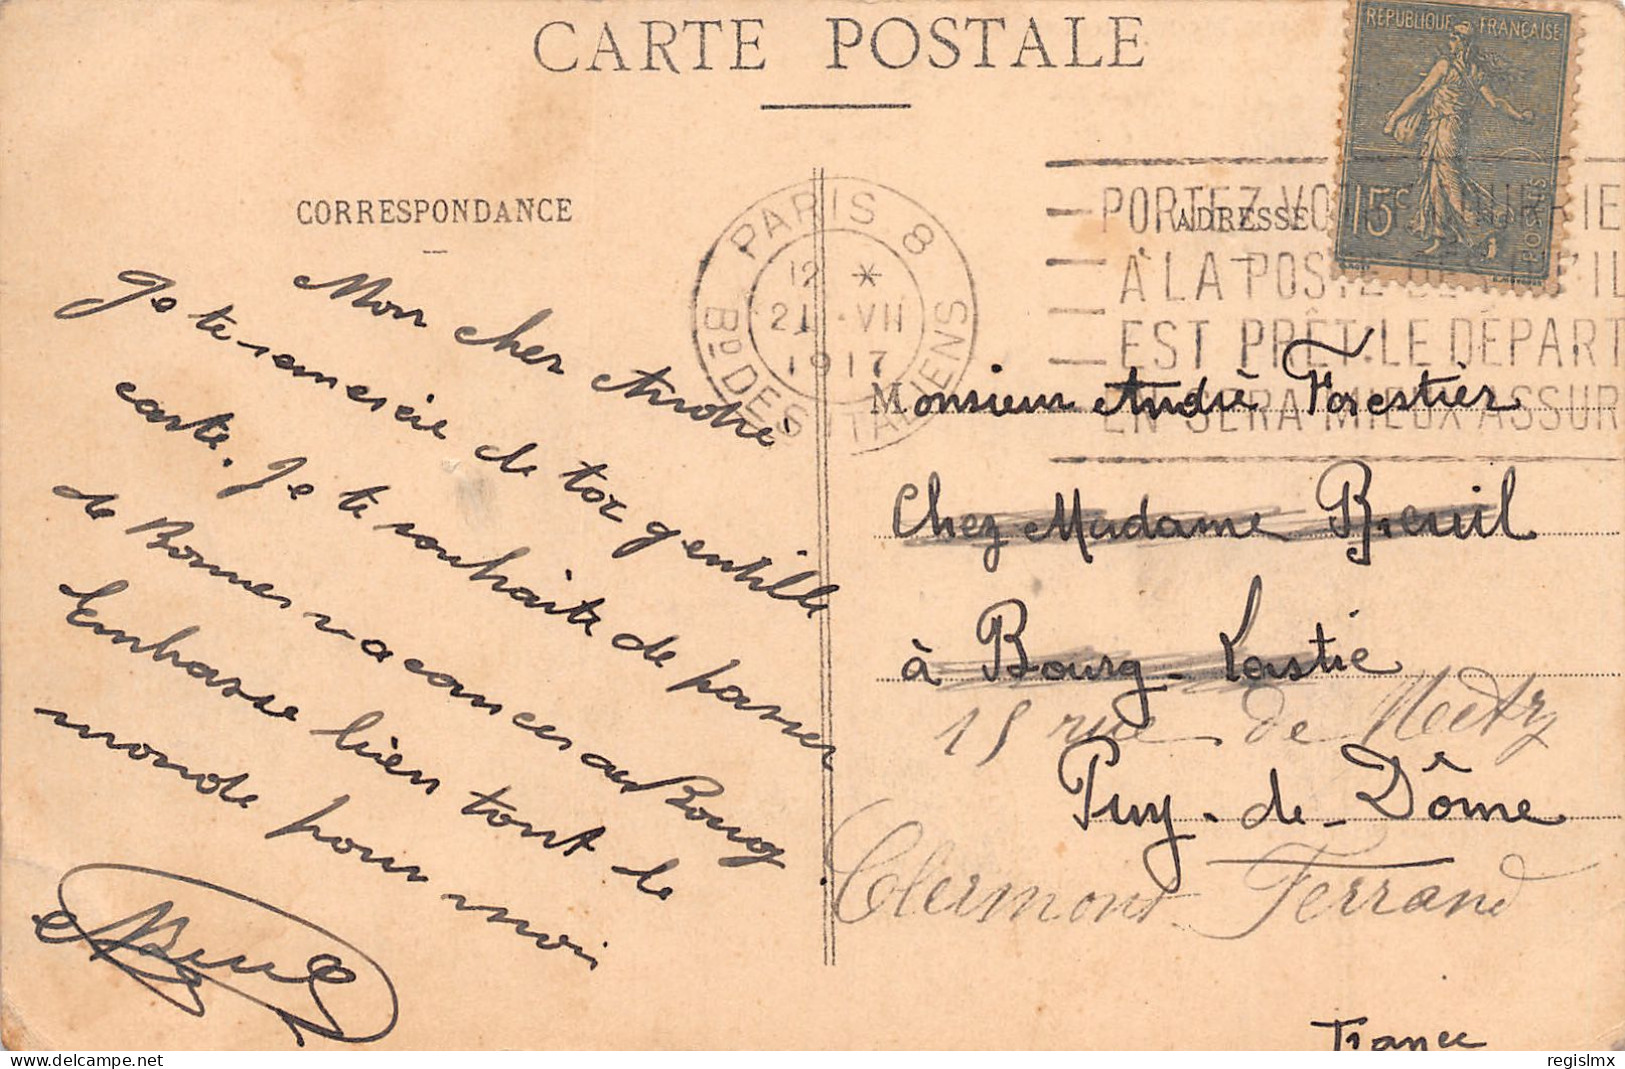 CARTE POSTALE
CORRESPONDANCE
Mon cher André
Je te remercie de toz gentille
carte. Je te souhaite de passer
de Bonnes vacances au Bourg
Embrasse bien tout le
monde pour moi
RÉPUBLIQUE FRANÇAISE
15c
POSTES
PARIS 8
Bd DES ITALIENS
12 *
21 · VII
1917
PORTEZ VOTRE COURRIE
À LA POSTE DÈS QU'IL
EST PRÊT. LE DÉPART
EN SERA MIEUX ASSUR
ADRESSE
Monsieur André Forestier
Chez Madame Breuil
à Bourg-Lastic
15 rue de
Puy-de-Dôme
Clermont-Ferrand
France
delcampe.net
regislmx